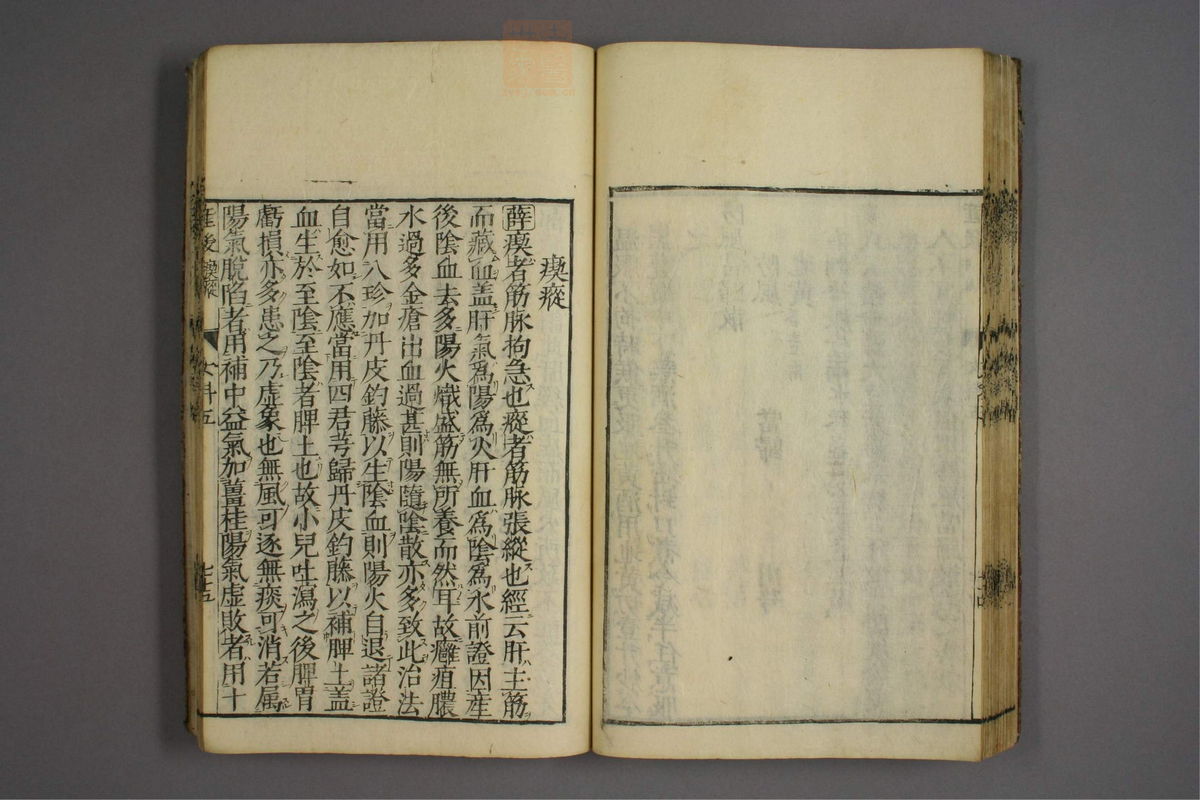 瘈瘲
薛瘈者筋脉拘急也瘲者筋脉張縱也經云肝主筋
而藏血盖肝氣爲陽爲火肝血爲陰爲水前證因産
後陰血去多陽火熾盛筋無所養而然耳故癰疽膿
水過多金瘡出血過甚則陽隨陰散亦多致此治法
當用八珍加丹皮鈞藤以生陰血則陽火自退諸證
自愈如不應當用四君芎歸丹皮鈞藤以補脾土盖
血生於至陰至陰者脾土也故小兒吐瀉之後脾胃
虧損亦多患之乃虛象也無風可逐無痰可消若属
陽氣脫陷者用補中益氣加薑桂陽氣虛敗者用十
産後 瘈瘲 女科五 七十五